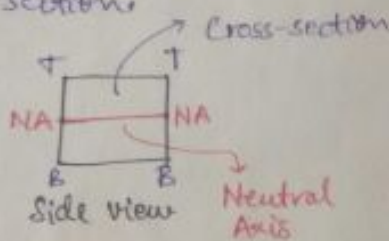 section.
Cross-section
T T
NA NA
B B
Side view
Neutral
Axis